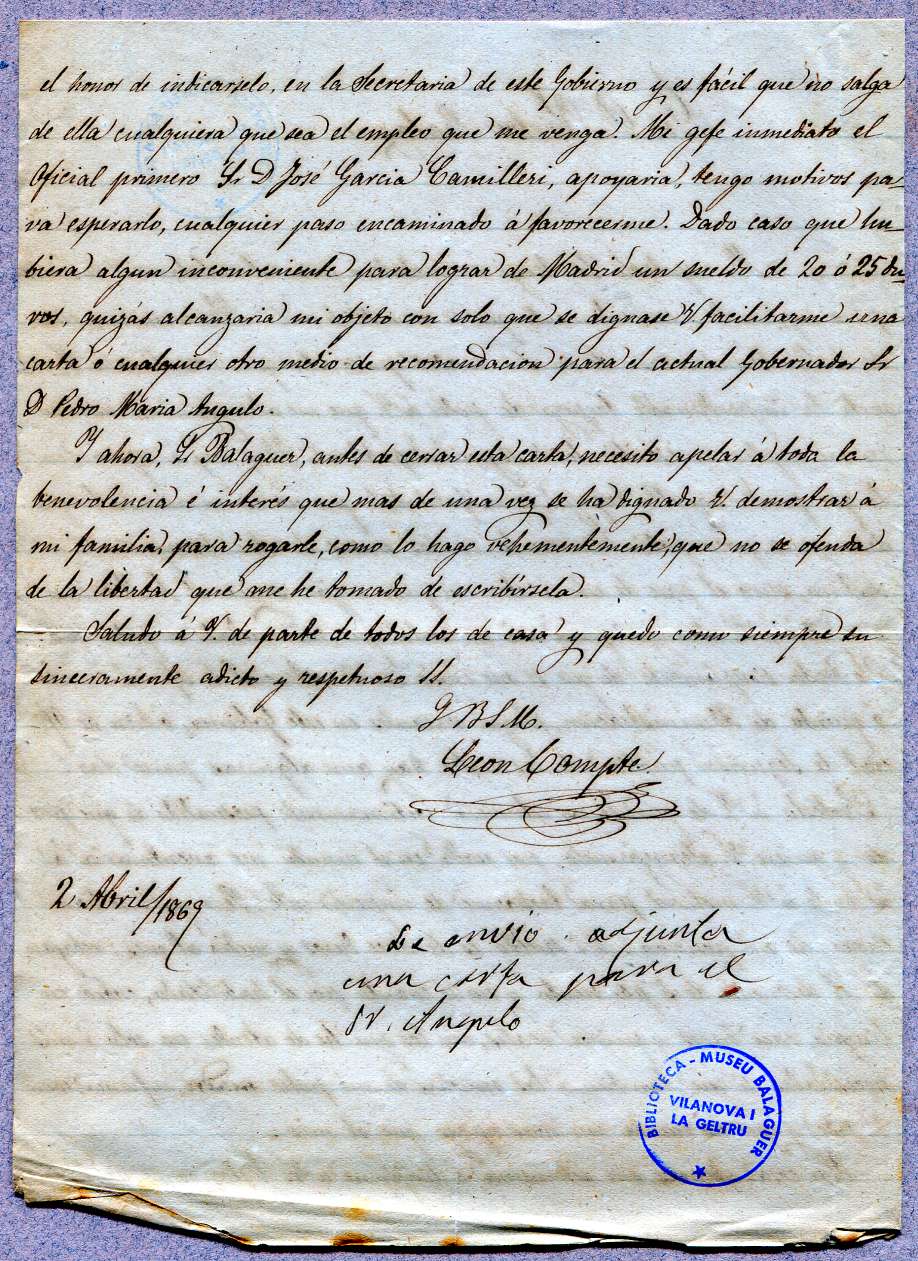 el honor de indicarselo, en la Secretaria de este Gobierno y es fácil que no salga
de ella cualquiera que sea el empleo que me venga. Mi gefe inmediato el
Oficial primero Sr D José Garcia Camilleri, apoyaria, tengo motivos pa-
ra esperarlo, cualquier paso encaminado á favorecerme. Dado caso que hu-
biera algun inconveniente para lograr de Madrid un sueldo de 20 ó 25 du-
ros, quizás alcanzaria mi objeto con solo que se dignase V. facilitarme una
carta ó cualquier otro medio de recomendacion para el actual Gobernador Sr
D Pedro Maria Angulo.
Y ahora, Sr Balaguer, antes de cerrar esta carta, necesito apelar á toda la
benevolencia é interés que mas de una vez se ha dignado V. demostrar á
mi familia, para rogarle, como lo hago vehementemente, que no se ofenda
de la libertad que me he tomado de escribírsela.
Saludo á V. de parte de todos los de casa y quedo como siempre su
sinceramente adicto y respetuoso SS.
Q B S M.
Leon Compte
2 Abril/1869
Le envio adjunta
una carta para el
Sr. Angulo
BIBLIOTECA - MUSEU BALAGUER
VILANOVA I
LA GELTRU